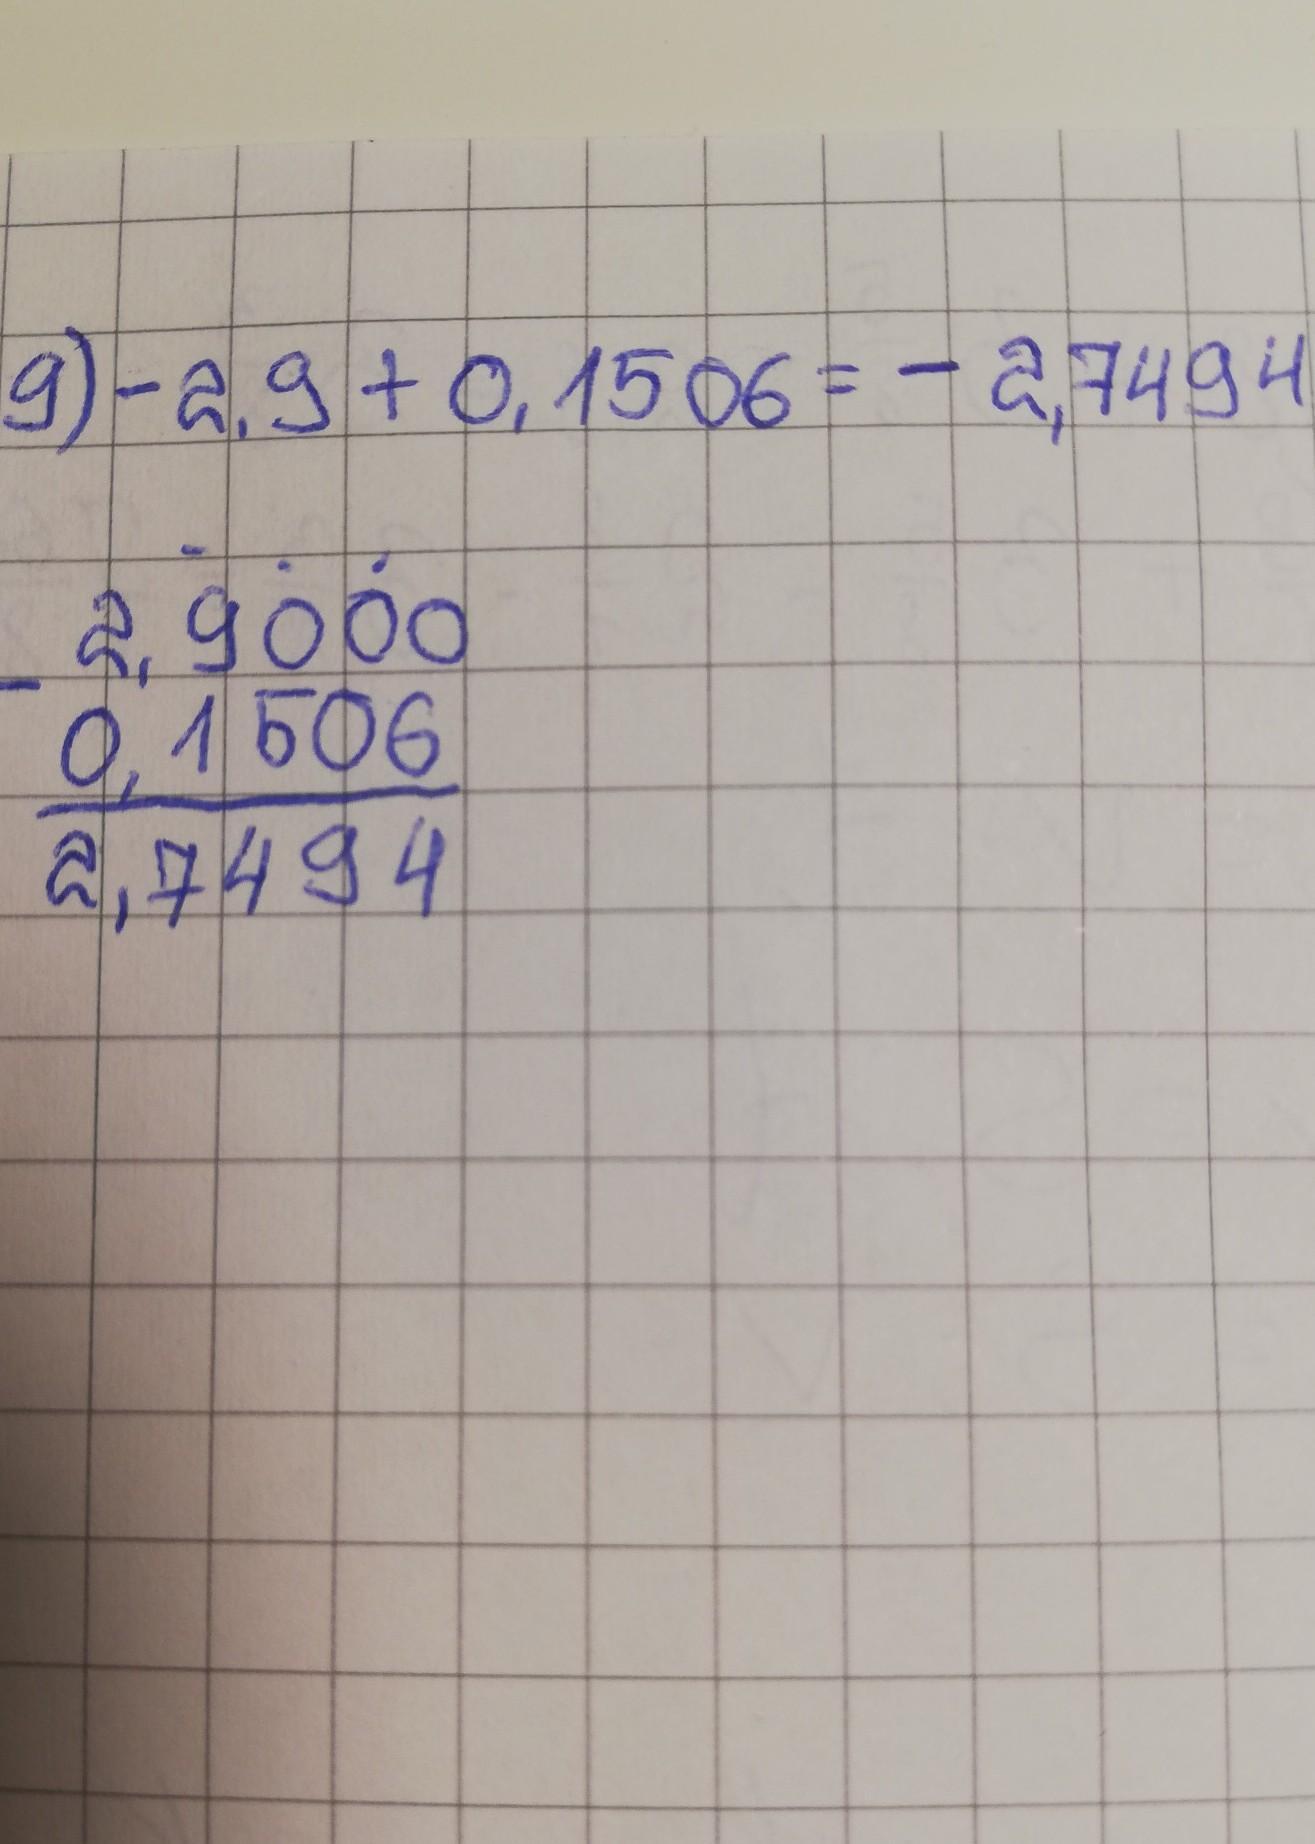 9) - 2,9 + 0,1506 = - 2,7494
2,9000
-
0,1506
2,7494